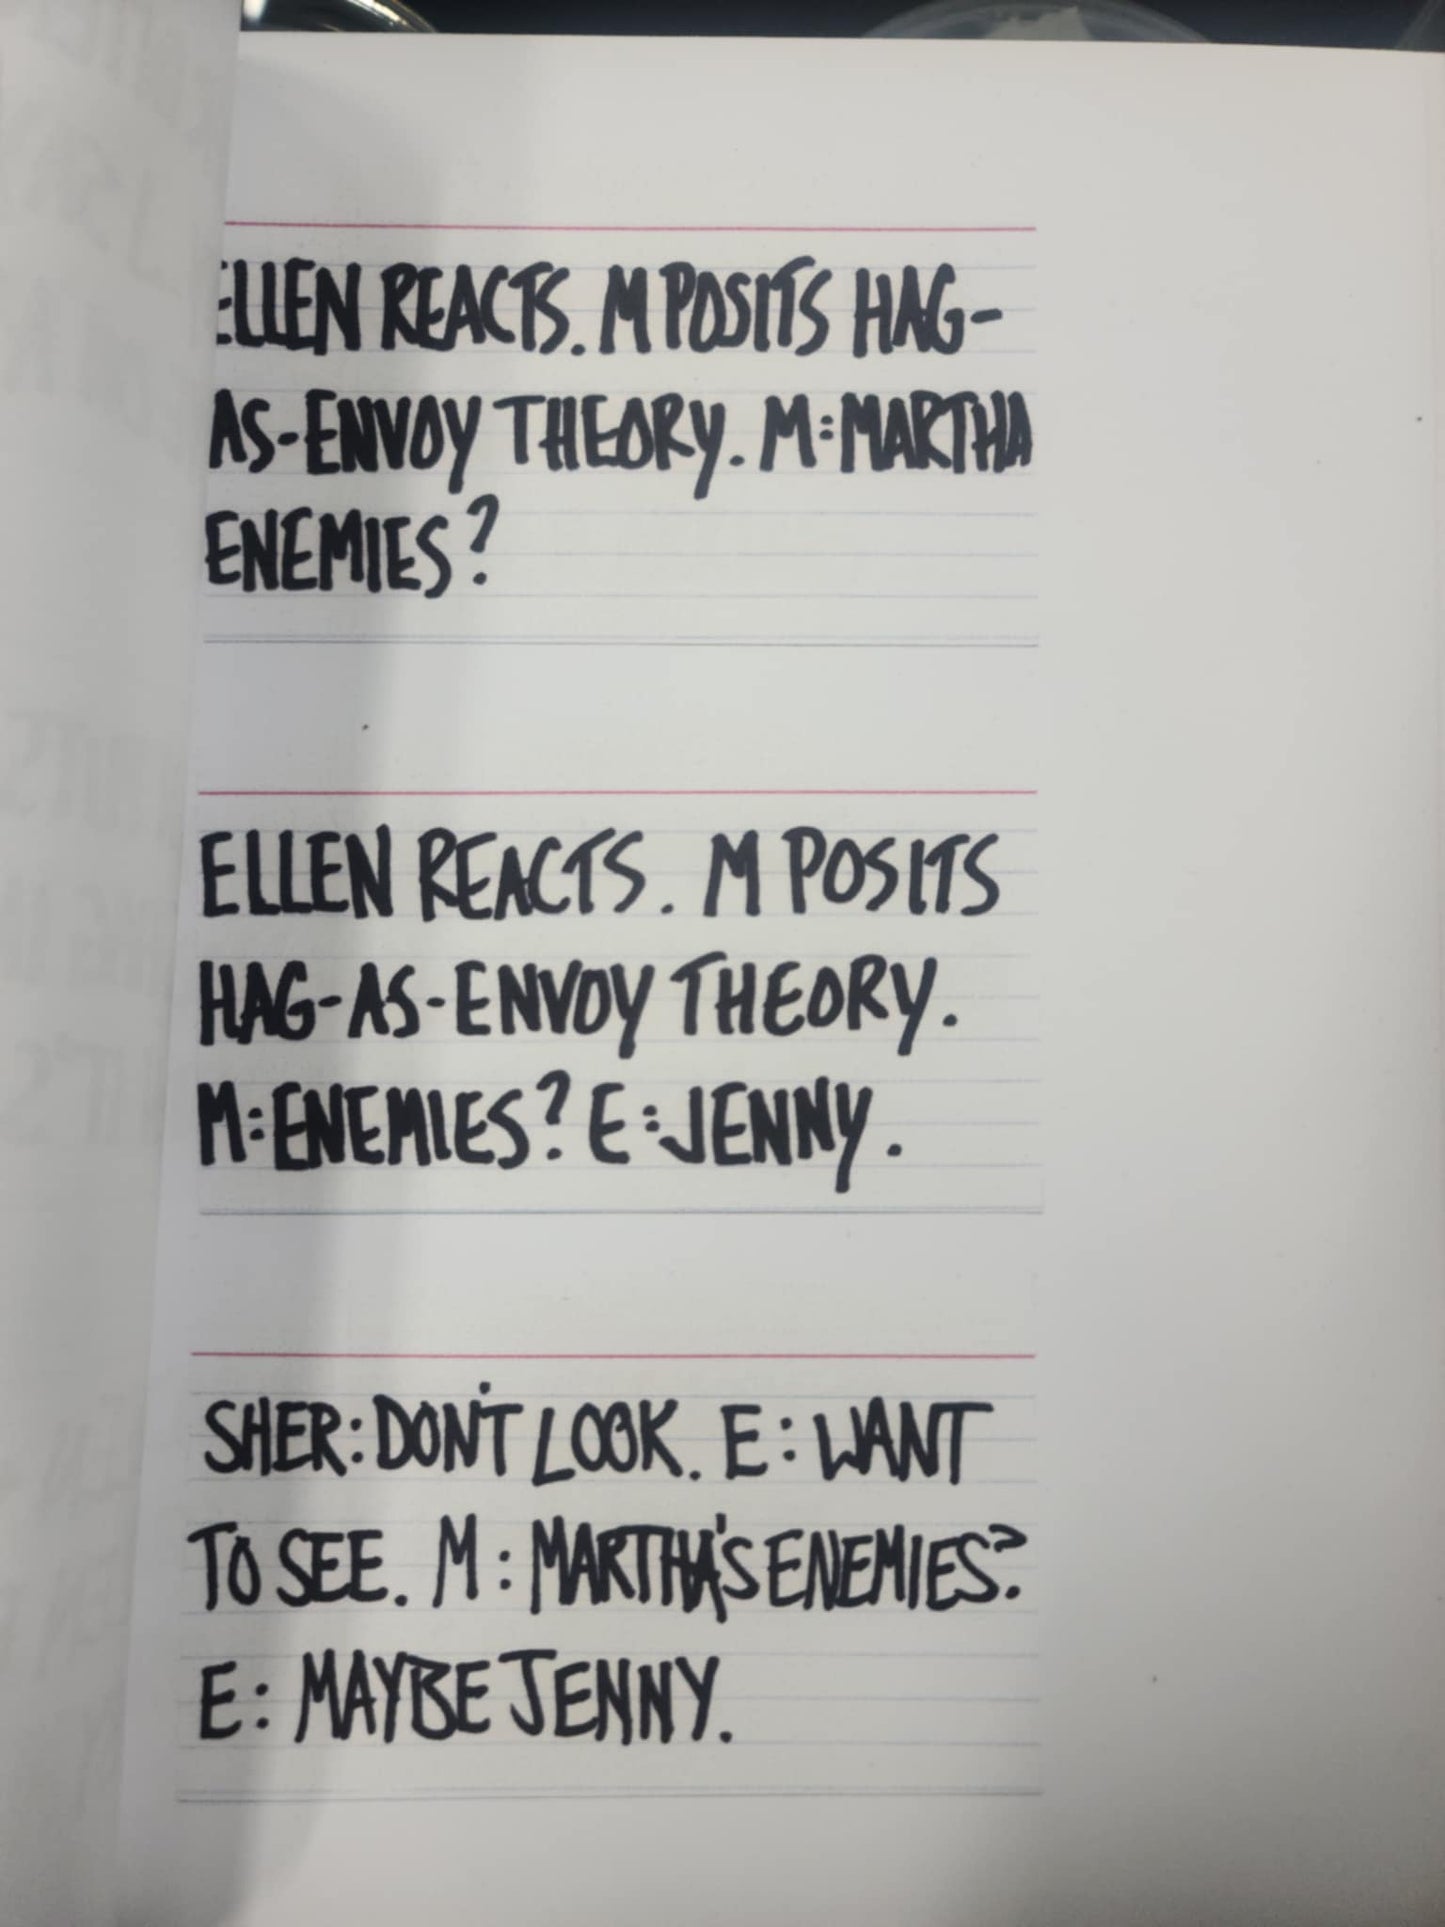 ELLEN REACTS. M POSITS HAG-
AS-ENVOY THEORY. M: MARTHA
ENEMIES?
ELLEN REACTS. M POSITS
HAG-AS-ENVOY THEORY.
M: ENEMIES? E: JENNY.
SHER: DON'T LOOK. E: WANT
TO SEE. M: MARTHA'S ENEMIES?
E: MAYBE JENNY.